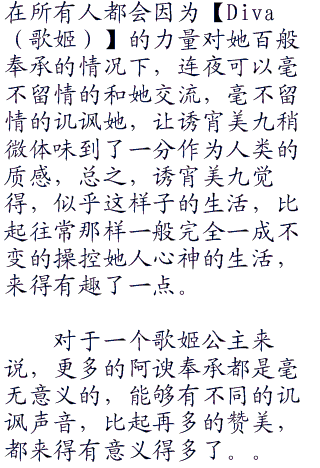 在所有人都会因为【Diva
（歌姬）】的力量对她百般
奉承的情况下，连夜可以毫
不留情的和她交流，毫不留
情的讥讽她，让诱宵美九稍
微体味到了一分作为人类的
质感，总之，诱宵美九觉
得，似乎这样子的生活，比
起往常那样一般完全一成不
变的操控她人心神的生活，
来得有趣了一点。
对于一个歌姬公主来
说，更多的阿谀奉承都是毫
无意义的，能够有不同的讥
讽声音，比起再多的赞美，
都来得有意义得多了。。